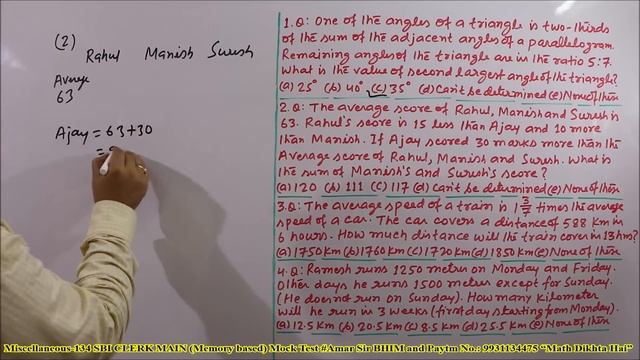 (2)
Rahul Manish Suresh
Average
63
Ajay = 63+30
=
1.Q: One of the angles of a triangle is two-thirds
of the sum of the adjacent angles of a parallelogram.
Remaining angles of the triangle are in the ratio 5:7.
What is the value of second largest angle of the triangle?
(a) 25° (b) 40° (c) 35° (d) Can't be determined (e) None of these
2.Q: The average score of Rahul, Manish and Suresh is
63. Rahul's score is 15 less than Ajay and 10 more
than Manish. If Ajay scored 30 marks more than the
Average score of Rahul, Manish and Suresh. What is
the sum of Manish's and Suresh's score?
(a) 120 (b) 111 (c) 117 (d) Can't be determined (e) None of these
3.Q: The average speed of a train is 1 3/7 times the average
speed of a car. The car covers a distance of 588 km in
6 hours. How much distance will the train cover in 13 hrs?
(a) 1750 km (b) 1760 km (c) 1720 km (d) 1850 km (e) None of these
4.Q: Ramesh runs 1250 metres on Monday and Friday.
Other days he runs 1500 metres except for Sunday.
(He does not run on Sunday). How many kilometer
will he run in 3 weeks (first day starting from Monday).
(a) 12.5 km (b) 20.5 km (c) 8.5 km (d) 25.5 km (e) None of these
Miscellaneous-134 SBI CLERK MAIN (Memory based) Mock Test #Amar Sir BHIM and Paytm No.: 9931134475 "Math Dikhta Hai"